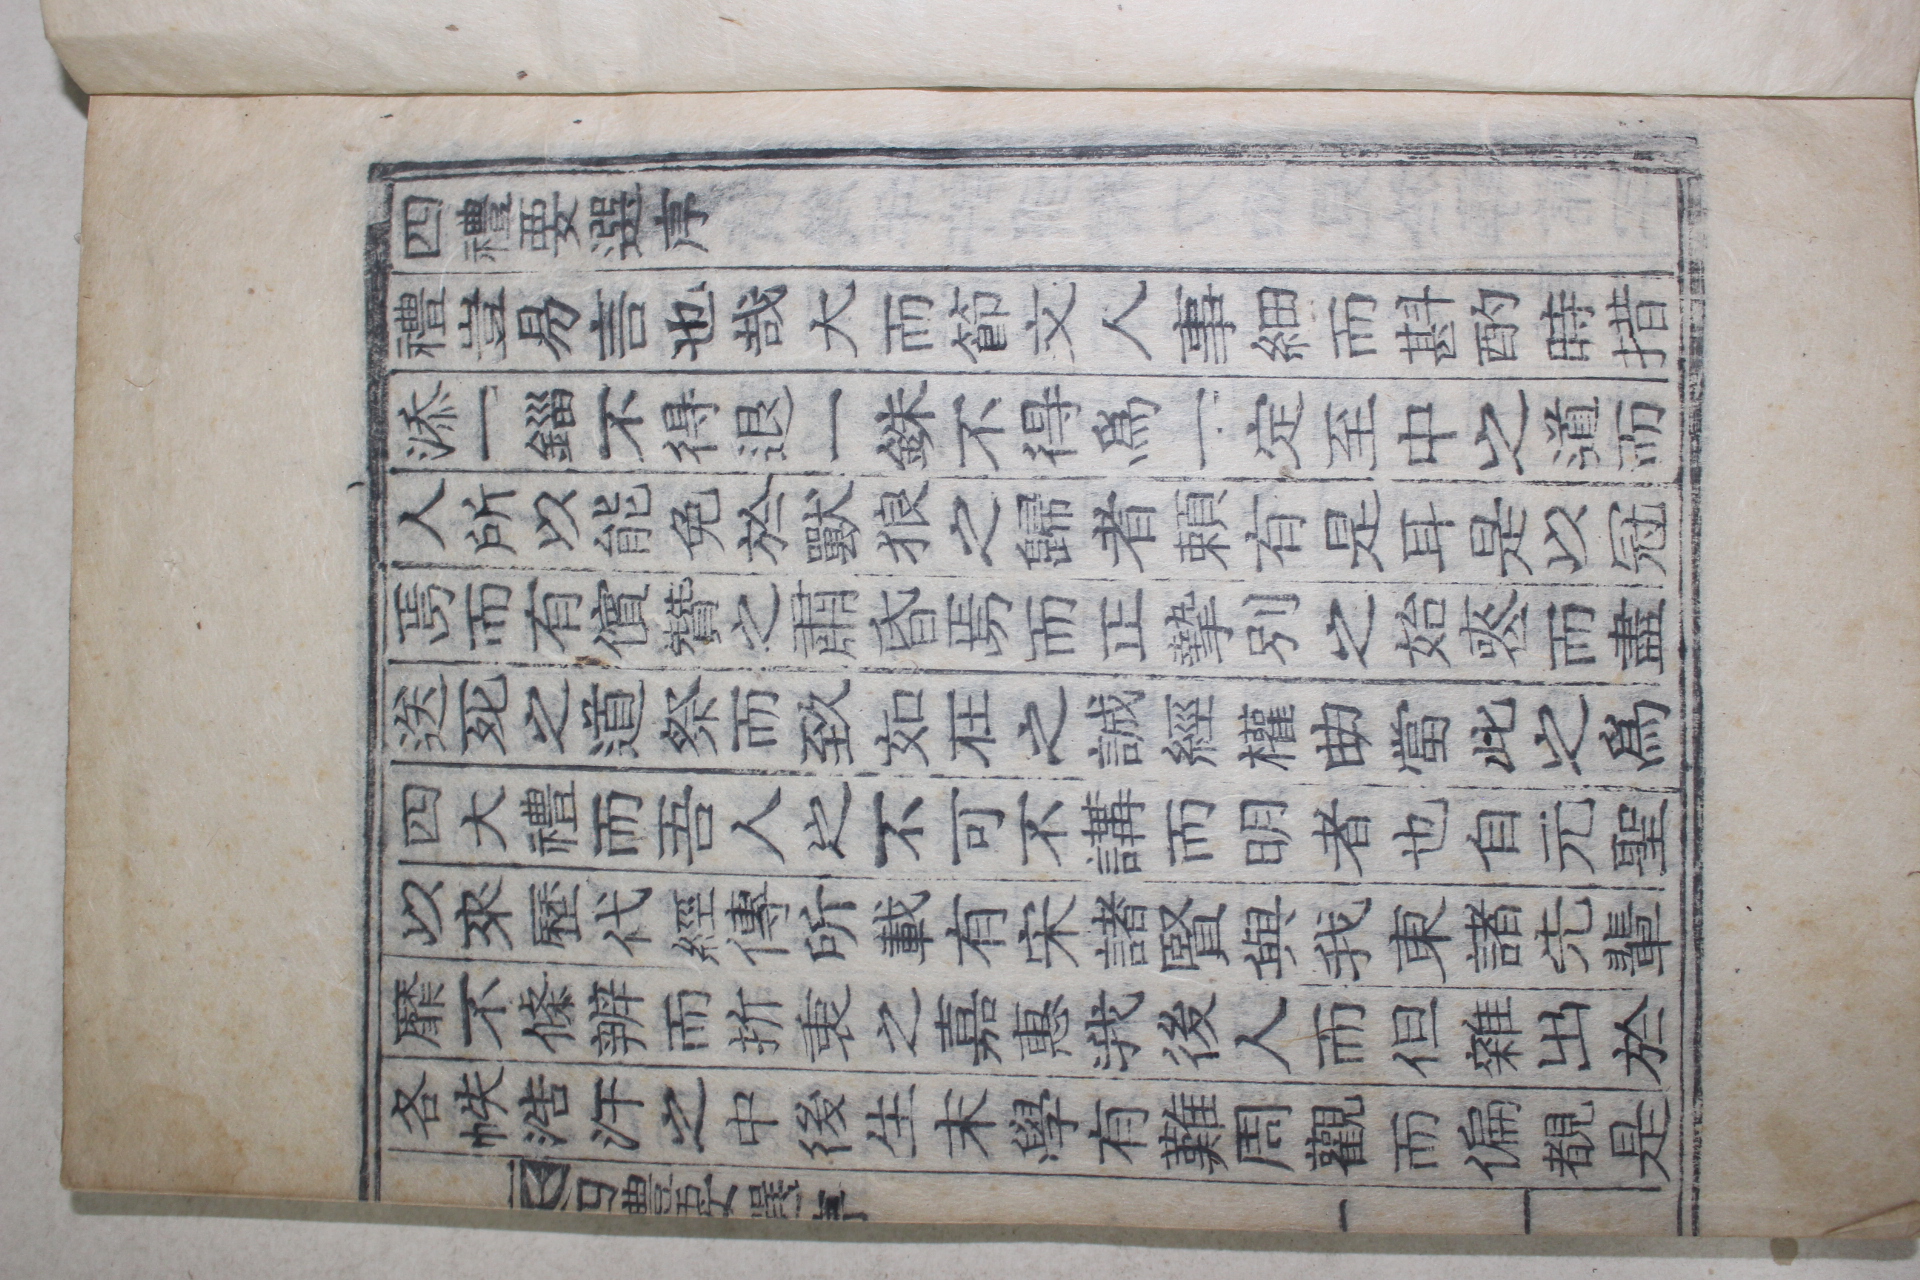 四禮要選序
禮豈易言也哉大而節文人事細而斟酌時措
添一錙不得退一銖不得爲一定至中之道而
人所以能免於獸狼之歸者賴有是耳是以冠
焉而有儐贊之肅昏焉而正摯別之始喪而盡
送死之道祭而致如在之誠經權曲當此之爲
四大禮而吾人之不可不講而明者也自元聖
以來歷代經傳所載有宋諸賢與我東諸先輩
靡不條辨而折衷之嘉惠我後人而但雜出於
各帙浩汗之中後生末學有難周觀而偏覩是
四禮要選序 一